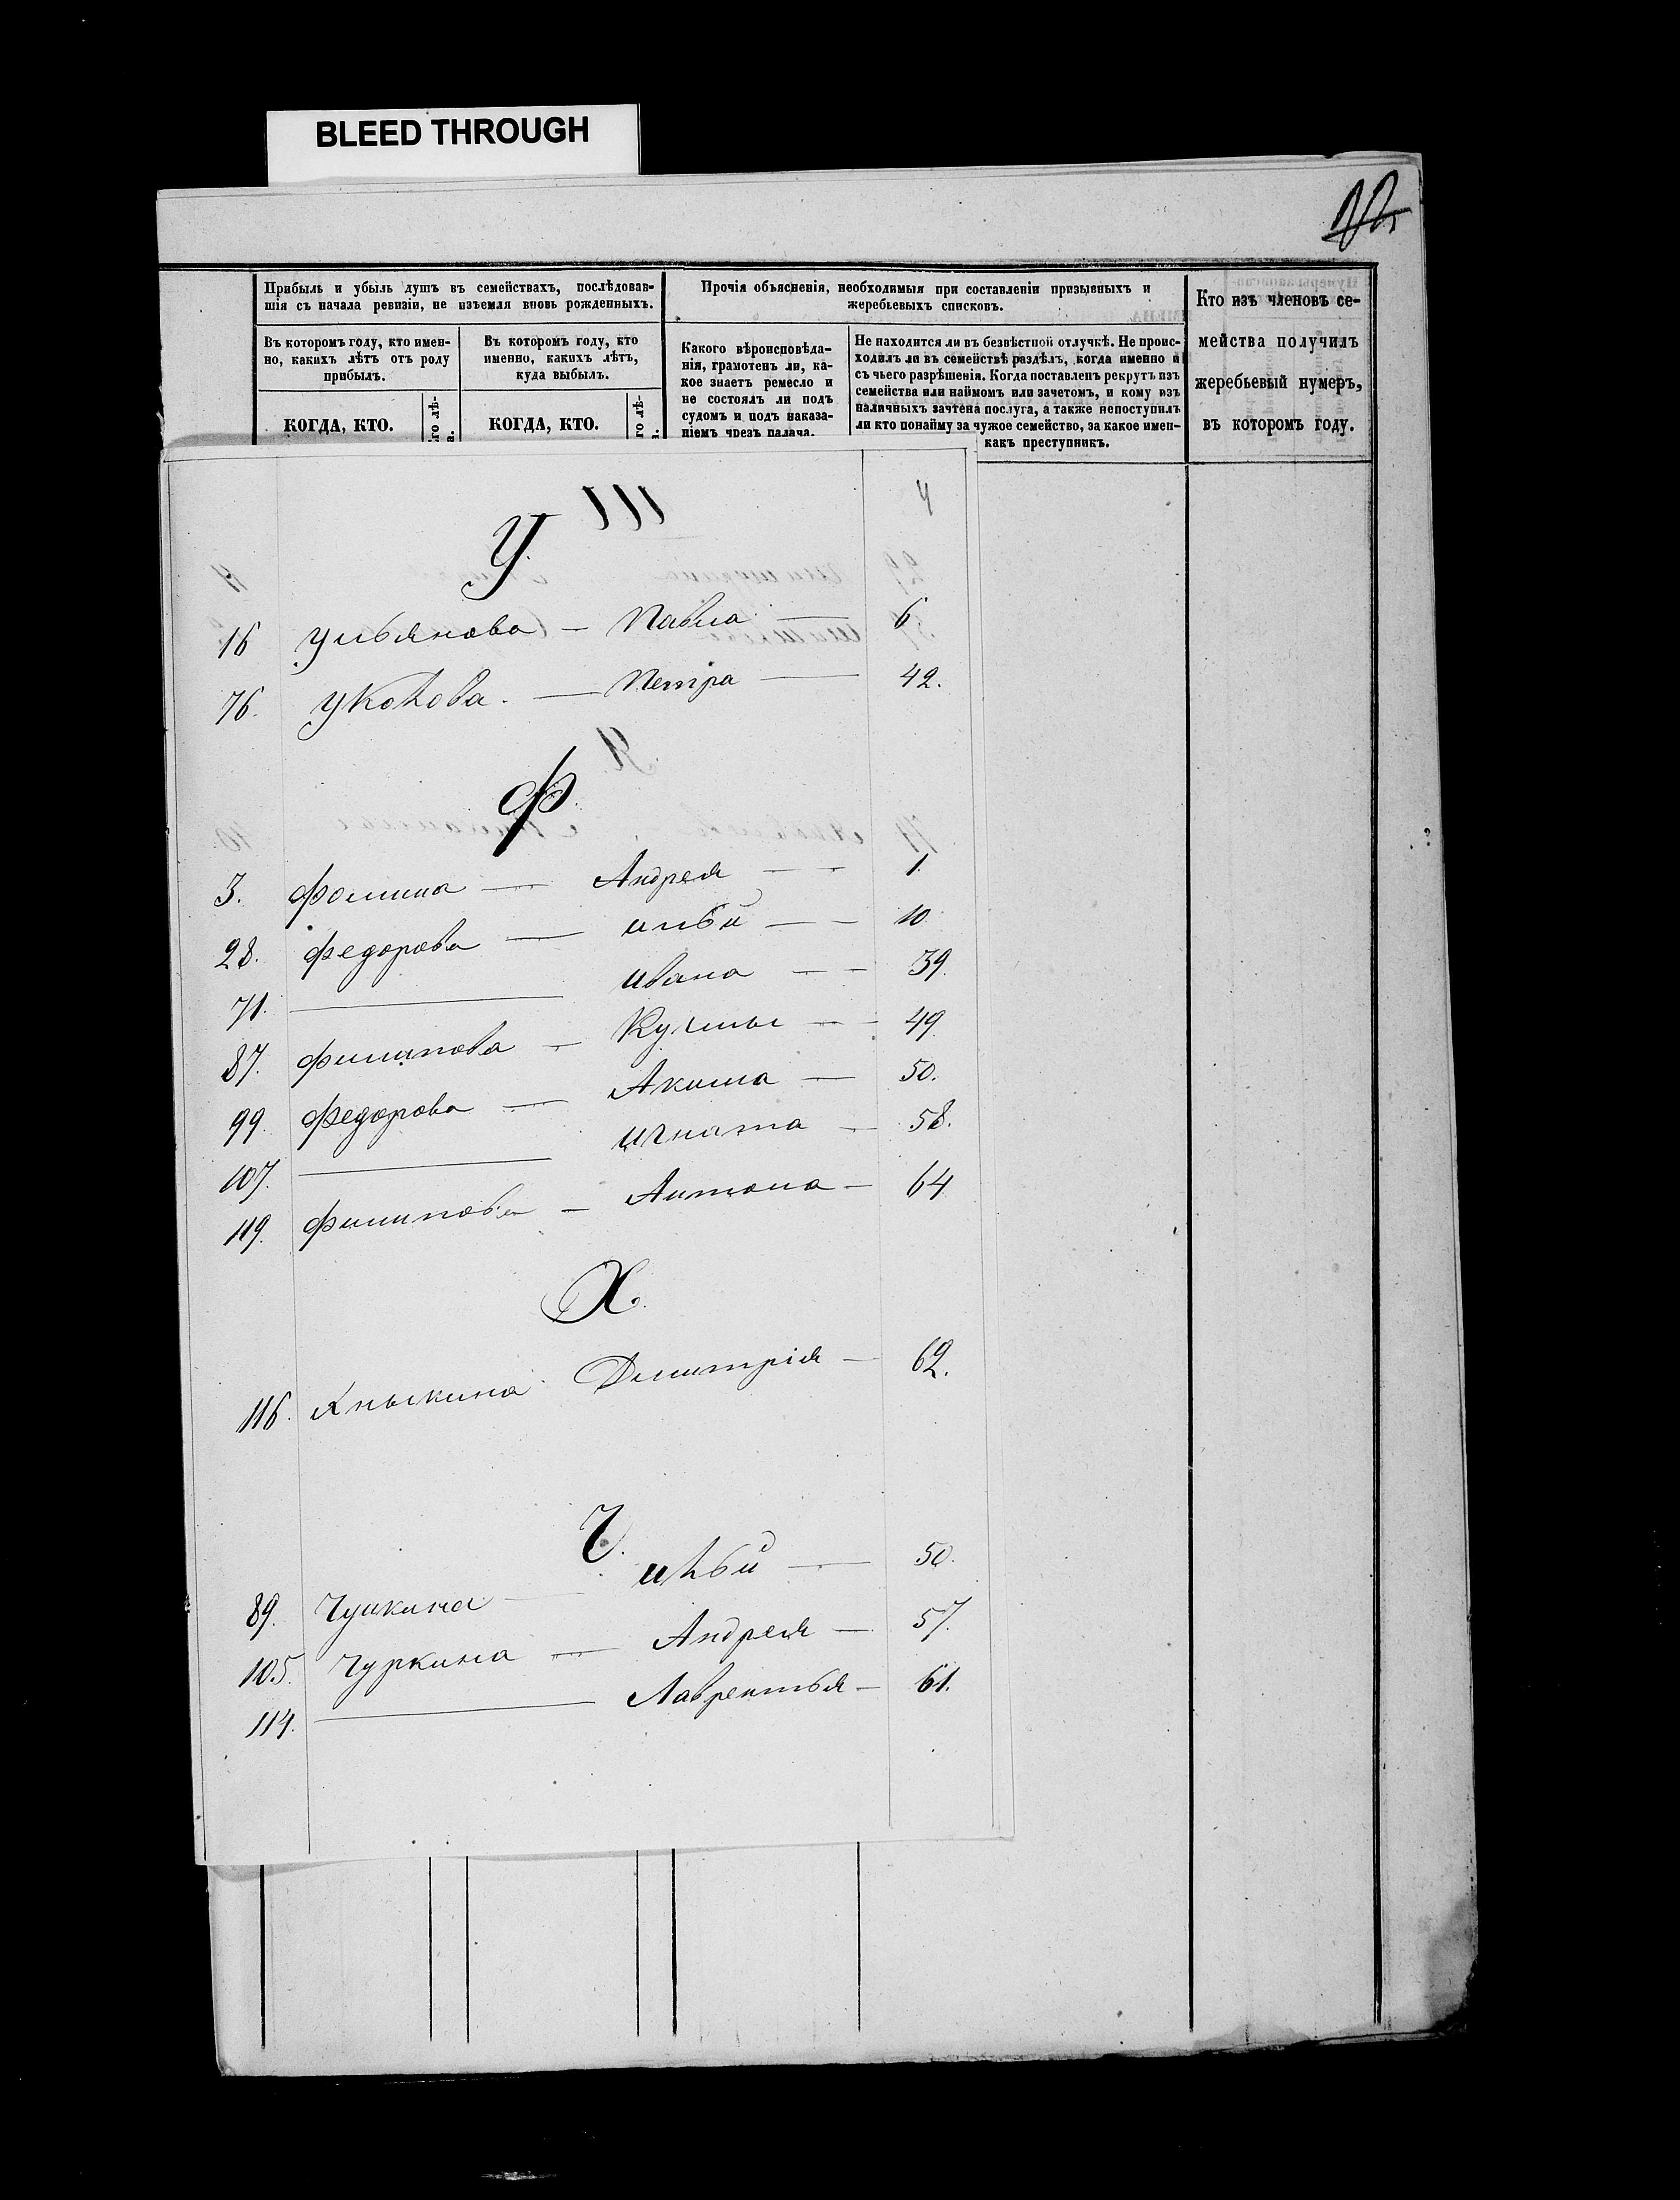 BLEED THROUGH
Прибыль и убыль душъ въ семействахъ, послѣдовав-
шія съ начала ревизіи, не изъемля вновь рожденныхъ.
Въ которомъ году, кто имен-
но, какихъ лѣтъ отъ роду
прибылъ.
КОГДА, КТО.
Въ которомъ году, кто
именно, какихъ лѣтъ,
куда выбылъ.
КОГДА, КТО.
Прочія объясненія, необходимыя при составленіи призывныхъ и
жеребьевыхъ списковъ.
Какого вѣроисповѣда-
нія, грамотенъ ли, ка-
кое знаетъ ремесло и
не состоялъ ли подъ
судомъ и подъ наказа-
ніемъ чрезъ палача.
Не находится ли въ безвѣстной отлучкѣ. Не проис-
ходилъ ли въ семействѣ раздѣлъ, когда именно и
съ чьего разрѣшенія. Когда поставленъ рекрутъ изъ
семейства или наймомъ или зачетомъ, и кому изъ
наличныхъ зачтена послуга, а также непоступилъ
ли кто понайму за чужое семейство, за какое имен-
какъ преступникъ.
Кто изъ членовъ се-
мейства получилъ
жеребьевый нумеръ,
въ которомъ году.
У.
16 Ульянова — Павла — 6
76. Укокова. — Петра — 42.
Ф.
3. Фомина — Андрея — — 1.
28. Федорова — Ильи — — 10
71. — Ивана — — 39.
87. Филипова — Кузмы — — 49
99. Федорова — Акима — 50.
107. — Игната — 58.
119. Филипова — Антона — 64
Х.
116. Хныкина Дмитрія — 62.
Ч.
89. Чушкина — Ильи — 50.
105. Чуркина — Андрея — 57.
114. — Лаврентья — 61.